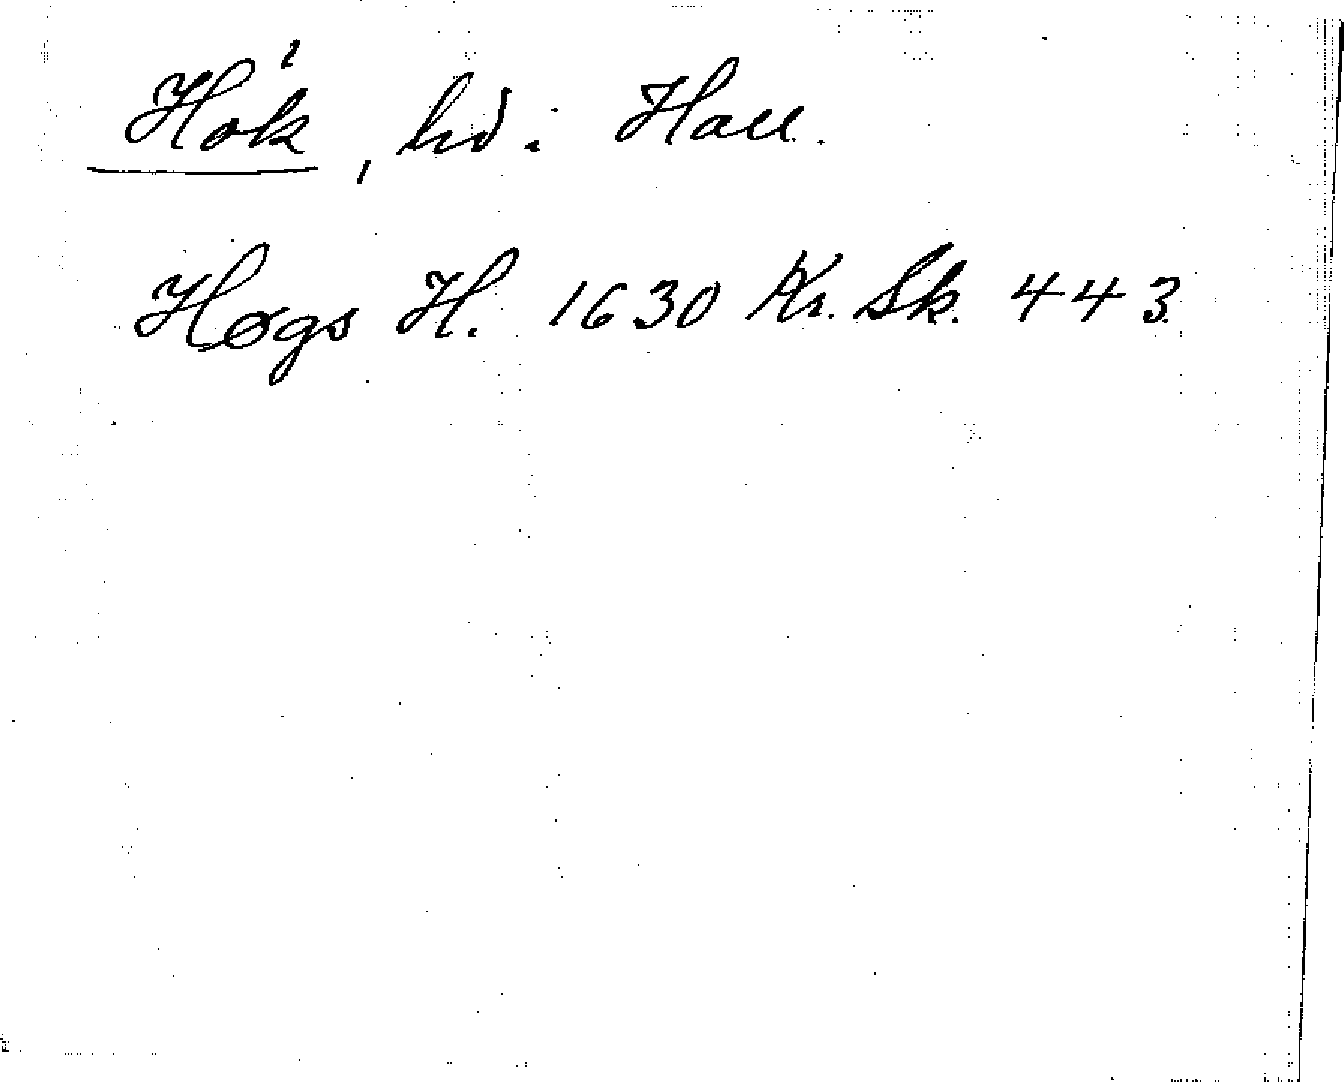 Hök, hd. Hall.
Høgs H. 1630 Kr. Sk. 443